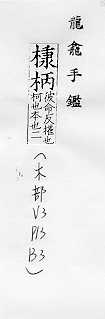 龍龕手鑑
棅柄
彼命反權也
柯也本也二
(木部
V3
P13
B3)